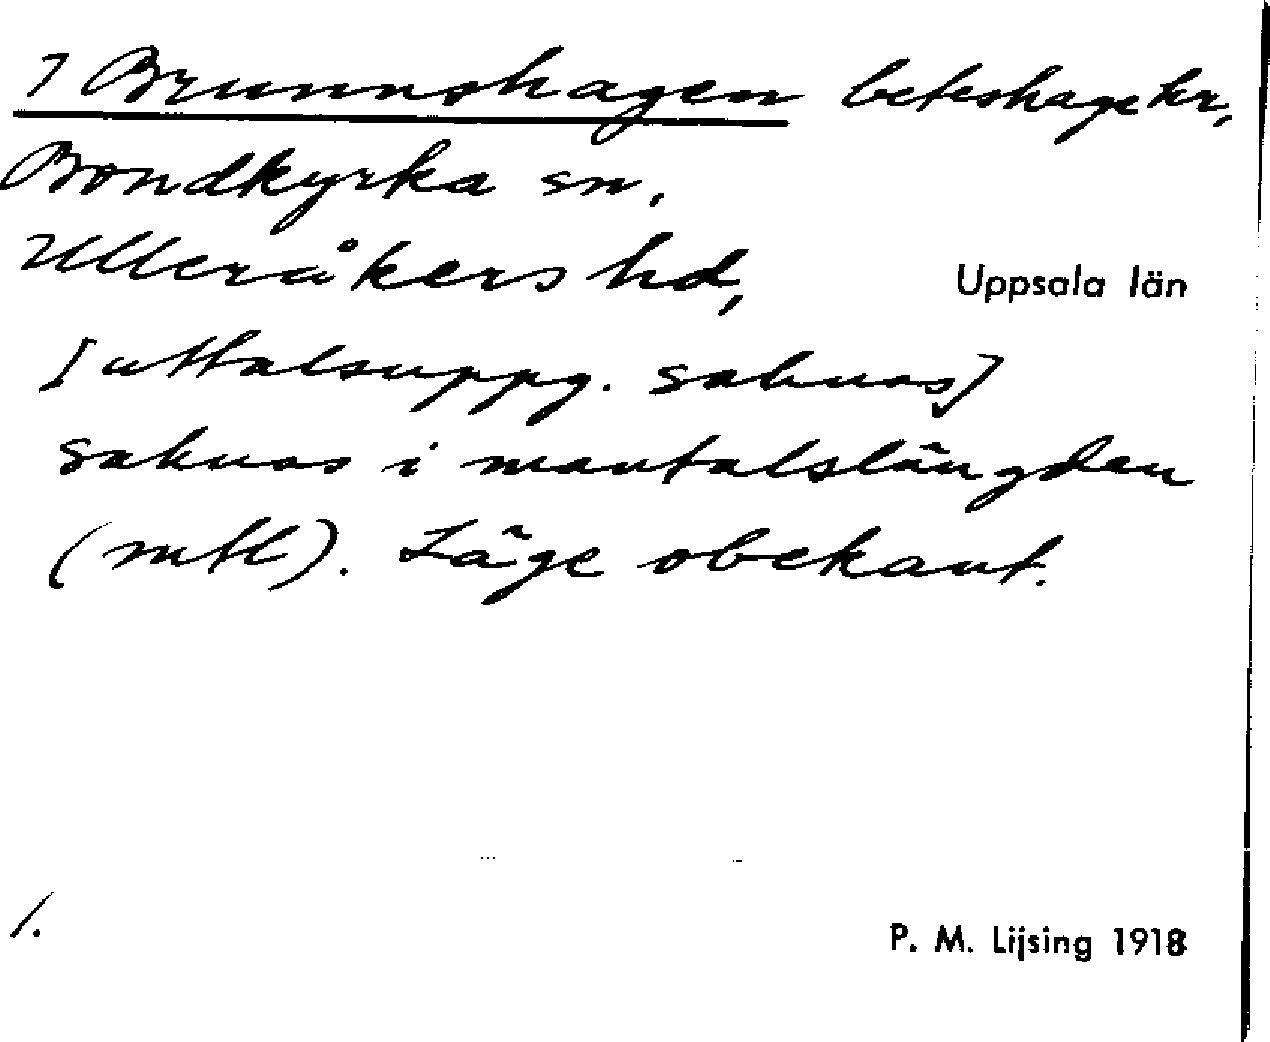 7 Brunnshagen beteshage hr,
Bondkyrka sn,
Ulleråkers hd, Uppsala län
[uttalsuppg. saknas]
saknas i mantalslängden
(mtl). Läge obekant.
1.
P. M. Lijsing 1918